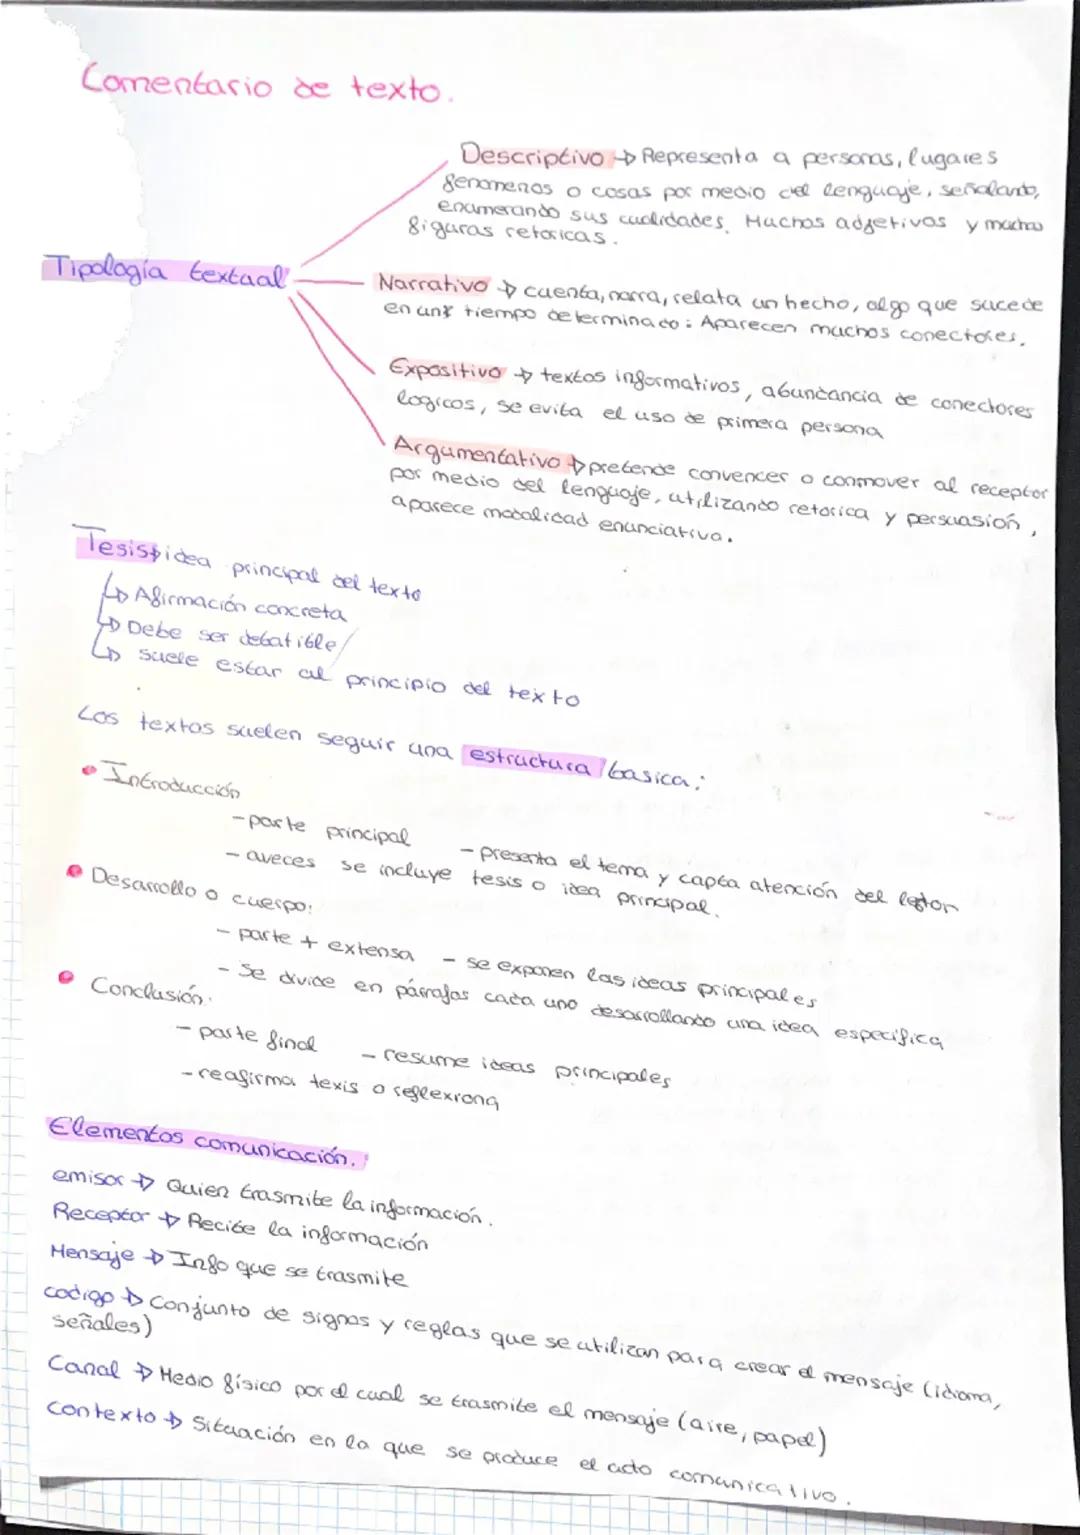 Comentario de texto.
Descriptivo → Representa a personas, lugares
fenomenos o cosas por medio del lenguaje, señalando,
enumerando sus cualidades. Muchos adjetivos y muchas
figuras retoricas.
Tipología textual
Narrativo → cuenta, narra, relata un hecho, algo que sucede
en un tiempo determinado: Aparecen muchos conectores.
Expositivo → textos informativos, abundancia de conectores
logicos, se evita el uso de primera persona
Argumentativo → pretende convencer o conmover al receptor
por medio del lenguaje, utilizando retorica y persuasión,
aparece modalidad enunciativa.
Tesis → idea principal del texto
↳ Afirmación concreta
↳ Debe ser debatible
↳ suele estar al principio del texto
Los textos suelen seguir una estructura basica:
• Introducción
- parte principal - presenta el tema y capta atención del lector
- aveces se incluye tesis o idea principal.
• Desarrollo o cuerpo:
- parte + extensa - se exponen las ideas principales
- Se divide en párrafos cada uno desarrollando una idea especifica
• Conclusión.
- parte final - resume ideas principales
- reafirma texis o reflexiona
Elementos comunicación.
emisor → Quien trasmite la información.
Receptor → Recibe la información
Mensaje → Info que se trasmite
codigo → Conjunto de signos y reglas que se utilizan para crear el mensaje (idioma,
señales)
Canal → Medio físico por el cual se trasmite el mensaje (aire, papel)
contexto → Situación en la que se produce el acto comunicativo.